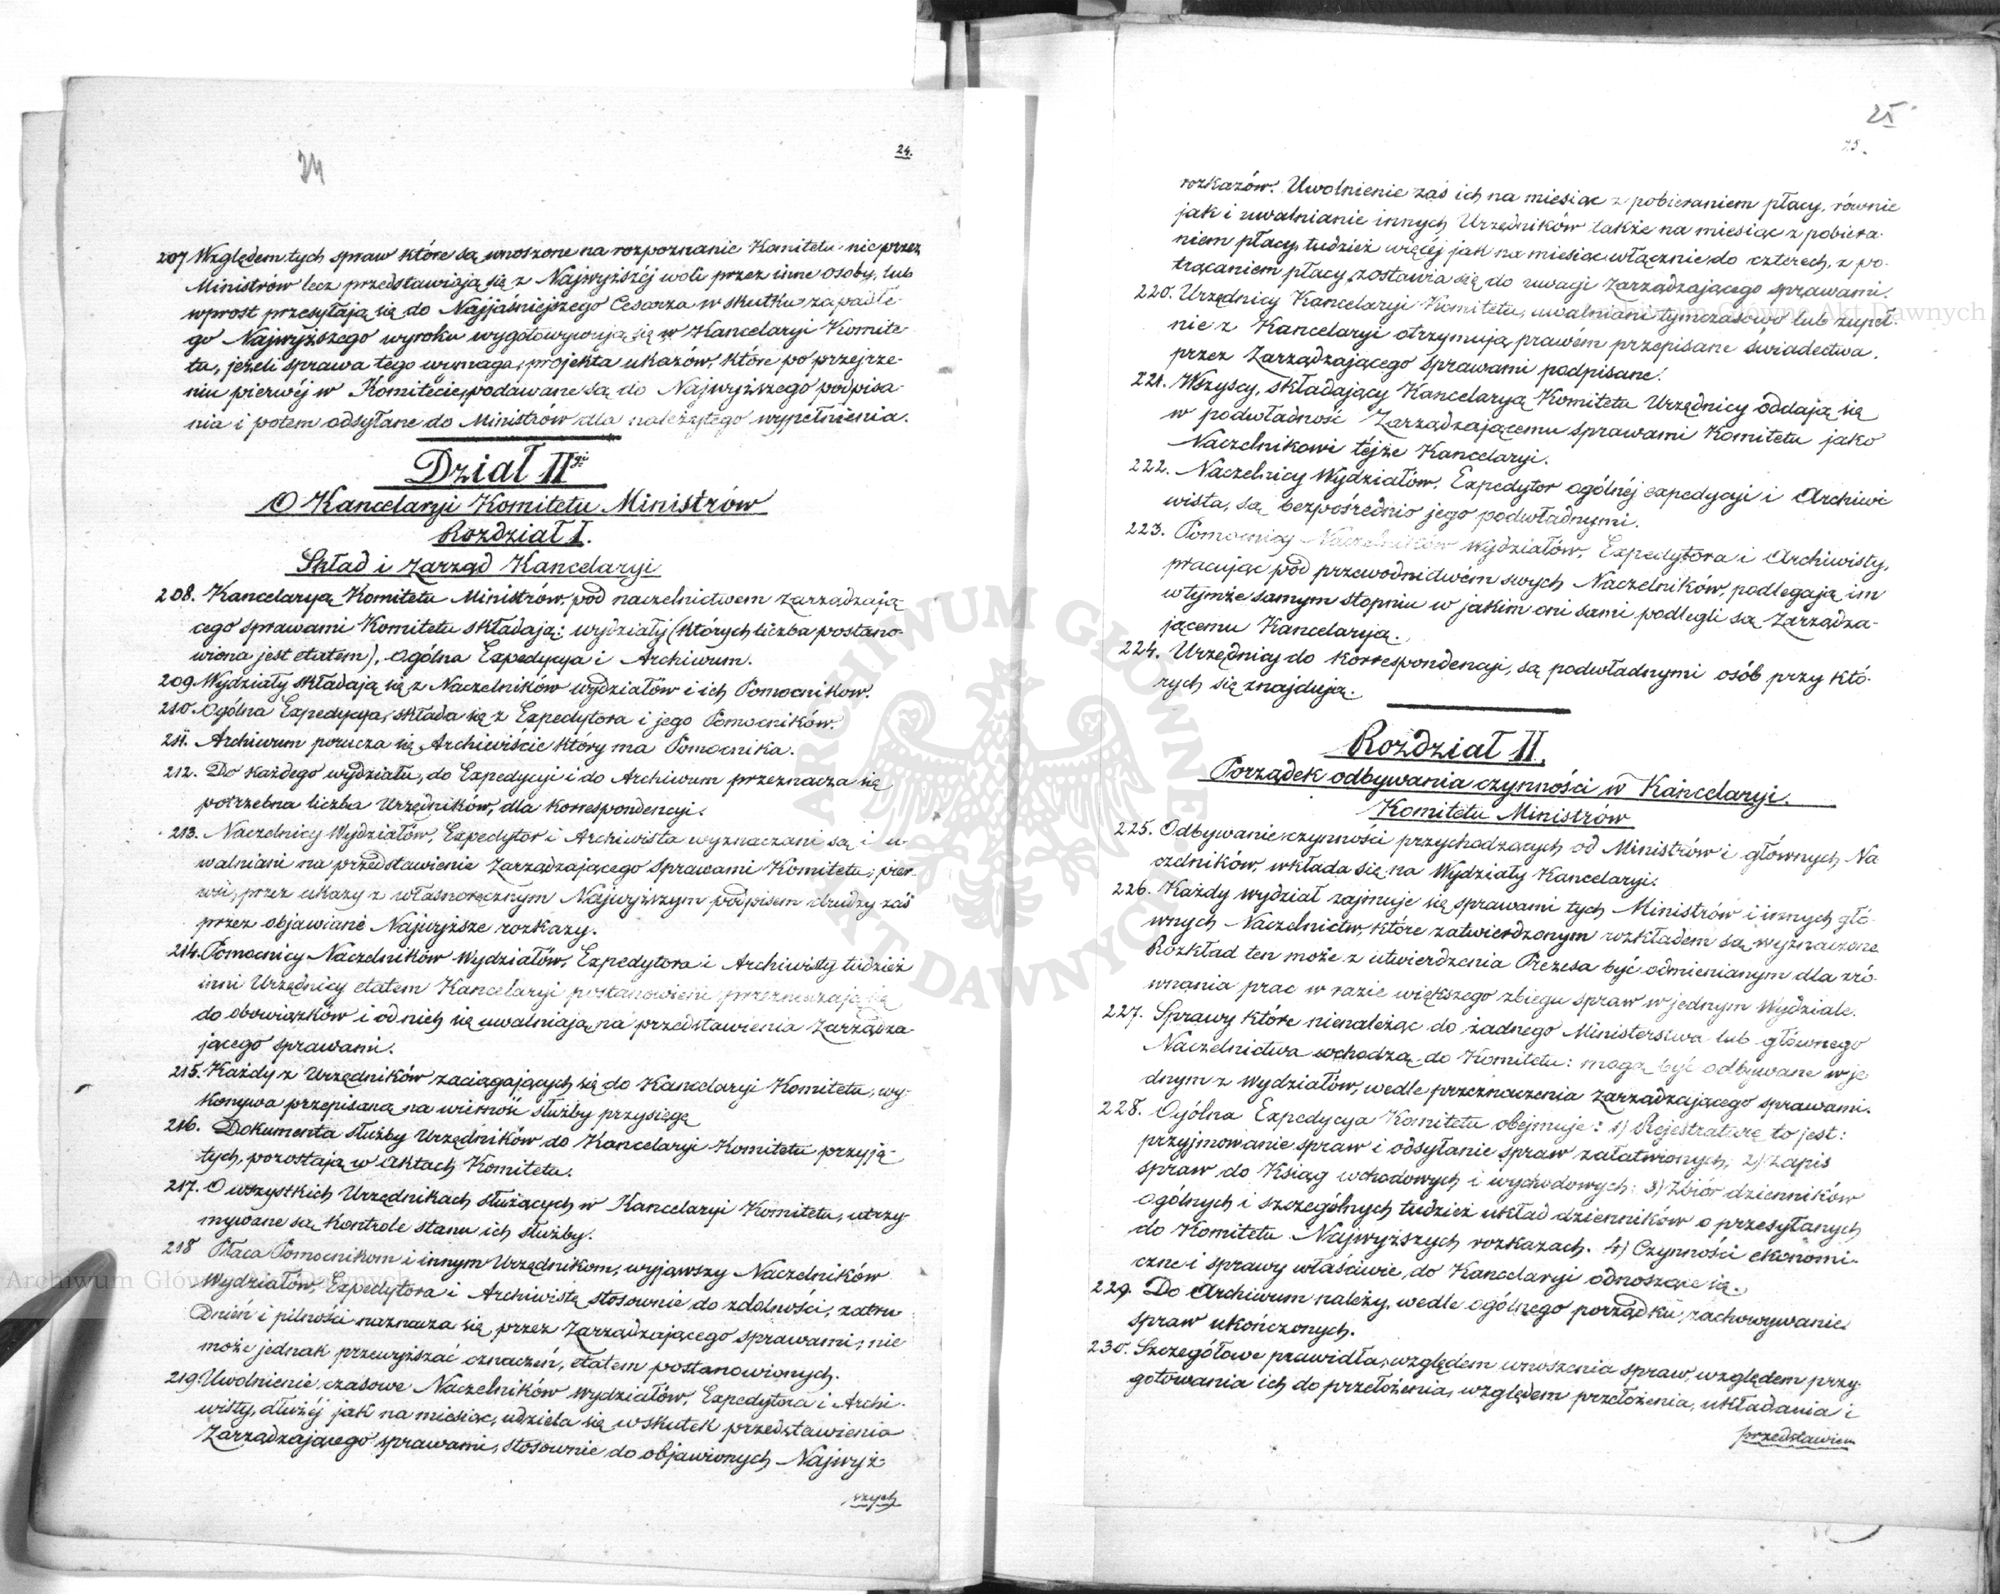 24
24.
207 Względem tych spraw które są wnoszone na rozpoznanie Komitetu nie przez
Ministrów lecz przedstawiają się z Najwyższéj woli przez inne osoby, lub
wprost przesyłają się do Najjaśniejszego Cesarza w skutku zapadłe-
go Najwyższego wyroku wygotowywują się w Kancelaryi Komite-
tu, jeżeli sprawa tego wymaga, projekta ukazów, które po przejrze-
niu pierwéj w Komitecie, podawane są do Najwyższego podpisa-
nia i potem odsyłane do Ministrów dla należytego wypełnienia.
Dział IIgi
O Kancelaryi Komitetu Ministrów
Rozdział I.
Skład i Zarząd Kancelaryi
208. Kancelaryą Komitetu Ministrów, pod naczelnictwem Zarządzają
cego sprawami Komitetu składają: wydziały (których liczba postano-
wiona jest etatem), Ogólna Expedycya i Archiwum.
209. Wydziały składają się z Naczelników wydziałów i ich Pomocników.
210. Ogólna Expedycya, składa się z Expedytora i jego Pomocników.
211. Archiwum porucza się Archiwiście który ma Pomocnika.
212. Do każdego wydziału, do Expedycyi i do Archiwum przeznacza się
potrzebna liczba Urzędników, dla korrespondencyi.
213. Naczelnicy Wydziałów, Expedytor i Archiwista wyznaczani są i u-
walniani na przedstawienie Zarządzającego sprawami Komitetu; pier-
wsi, przez ukazy z własnoręcznym Najwyższym podpisem drudzy zaś
przez objawiane Najwyższe rozkazy.
214. Pomocnicy Naczelników Wydziałów, Expedytora i Archiwisty tudzież
inni Urzędnicy etatem Kancelaryi postanowieni przeznaczają się
do obowiązków i od nich się uwalniają na przedstawienia Zarządza-
jącego sprawami.
215. Każdy z Urzędników zaciągających się do Kancelaryi Komitetu, wy-
konywa przepisaną na wierność służby przysięgę
216. Dokumenta służby Urzędników do Kancelaryi Komitetu przyję-
tych, pozostają w Aktach Komitetu.
217. O wszystkich Urzędnikach służących w Kancelaryi Komitetu, utrzy
mywane są kontrole stanu ich służby.
218 Płaca Pomocnikom i innym Urzędnikom, wyjąwszy Naczelników
Wydziałów, Expedytora i Archiwistę stosownie do zdolności, zatru-
dnień i pilności naznacza się przez Zarządzającego sprawami; nie
może jednak przewyższać oznaczeń, etatem postanowionych.
219. Uwolnienie czasowe Naczelników Wydziałów, Expedytora i Archi-
wisty, dłużéj jak na miesiąc, udziela się w skutek przedstawienia
Zarządzającego sprawami, stosownie do objawionych Najwyż-
szych
25
25.
rozkazów. Uwolnienie zaś ich na miesiąc z pobieraniem płacy, równie
jak i uwalnianie innych Urzędników także na miesiąc z pobiera-
niem płacy, tudzież więcéj jak na miesiąc włącznie do czterech, z po-
trącaniem płacy zostawia się do uwagi Zarządzającego sprawami.
220. Urzędnicy Kancelaryi Komitetu, uwalniani tymczasowo lub zupeł-
nie z Kancelaryi otrzymują prawem przepisane świadectwa,
przez Zarządzającego sprawami podpisane.
221. Wszyscy, składający Kancelaryą Komitetu Urzędnicy oddają się
w podwładność Zarządzającemu sprawami Komitetu jako
Naczelnikowi tejże Kancelaryi.
222. Naczelnicy Wydziałów, Expedytor ogólnéj expedycyi i Archiwi
wista, są bezpośrednio jego podwładnymi.
223. Pomocnicy Naczelników Wydziałów, Expedytora i Archiwisty,
pracując pod przewodnictwem swych Naczelników, podlegają im
w tymże samym stopniu w jakim oni sami podlegli są Zarządza-
jącemu Kancelaryą.
224. Urzędnicy do korrespondencyi, są podwładnymi osób przy któ-
rych się znajdują.
Rozdział II.
Porządek odbywania czynności w Kancelaryi.
Komitetu Ministrów
225. Odbywanie czynności przychodzących od Ministrów i głównych Na
czelników, wkłada się na Wydziały Kancelaryi.
226. Każdy wydział zajmuje się sprawami tych Ministrów i innych głó-
wnych Naczelnictw, które zatwierdzonym rozkładem są wyznaczone
Rozkład ten może z utwierdzenia Prezesa być odmienianym dla zró-
wnania prac w razie większego zbiegu spraw w jednym Wydziale.
227. Sprawy które nienależąc do żadnego Ministerstwa lub głównego
Naczelnictwa wchodzą do Komitetu: mogą być odbywane w je
dnym z Wydziałów, wedle przeznaczenia Zarządzającego sprawami.
228. Ogólna Expedycya Komitetu obejmuje: 1) Rejestraturę to jest:
przyjmowanie spraw i odsyłanie spraw załatwionych; 2) Zapis
spraw do Ksiąg wchodowych i wychodowych: 3) Zbiór dzienników
ogólnych i szczególnych tudzież układ dzienników o przesyłanych
do Komitetu Najwyższych rozkazach. 4) Czynności ekonomi-
czne i sprawy właściwie, do Kancelaryi odnoszące się.
229. Do Archiwum należy, wedle ogólnego porządku, zachowywanie
spraw ukończonych.
230. Szczegółowe prawidła, względem wnoszenia spraw, względem przy-
gotowania ich do przełożenia, względem przełożenia, układania i
przedstawien
Archiwum Główne Akt Dawnych
Archiwum Główne Akt Dawnych
ARCHIWUM GŁÓWNE AKT DAWNYCH